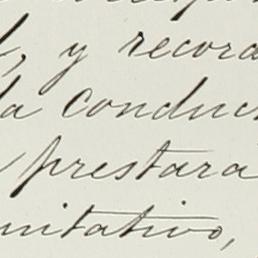 y recora
da conduc
prestara
nitativo,